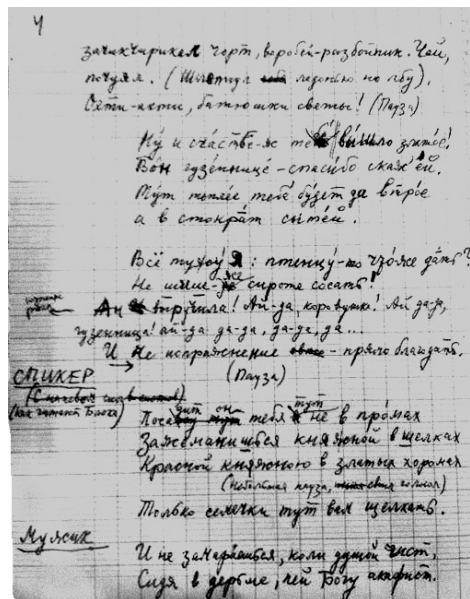 4
зачикчирикал чорт, воробей-разбойник. Чай,
почуял. ( ладонью по лбу).
Охти-ахти, батюшки светы! (Пауза)
Ну и счастье-ж тебе вышло златое!
Вон гузённице - спасибо скаж' ей.
Тут теплее тебе будет да впрое
а в стократ сытей.
Всё тужу я: птенцу-то что-же дать?
Не же сироте сосать!
Ай-да, коровушка! Ай да-да,
гузенница! ай-да да-да, да-да, да...
И не испражнение - прямо благодать.
(Пауза)
СПИКЕР
(как читают Блока)
дит он тебя тут не в промах
Зажеманишься княжной в шелках
Красной княжною в златых хоромах
(Небольшая пауза, голосом)
Только семечки тут вам щелкать.
Мужик
И не замараешься, коли душой чист,
Сидя в дерьме, пей Богу акафист.